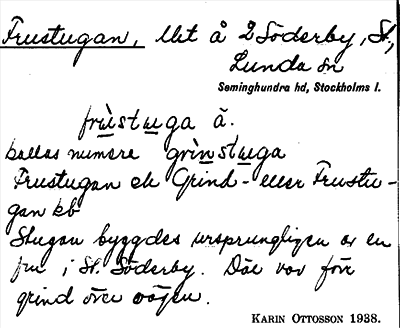 Frustugan, lht å 2 Söderby, St.,
Lunda sn
Seminghundra hd, Stockholms l.
frùstuga ä.
kallas numera grìnstuga
Frustugan ek Grind- eller Frustu-
gan kb
Stugan byggdes ursprungligen av en
fru i St. Söderby. Där var förr
grind över vägen.
KARIN OTTOSSON 1938.